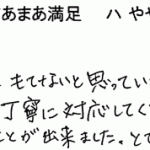 あまあ満足 ハ やや
もてないと思ってい
丁寧に対応してく
ことが出来ました。とて